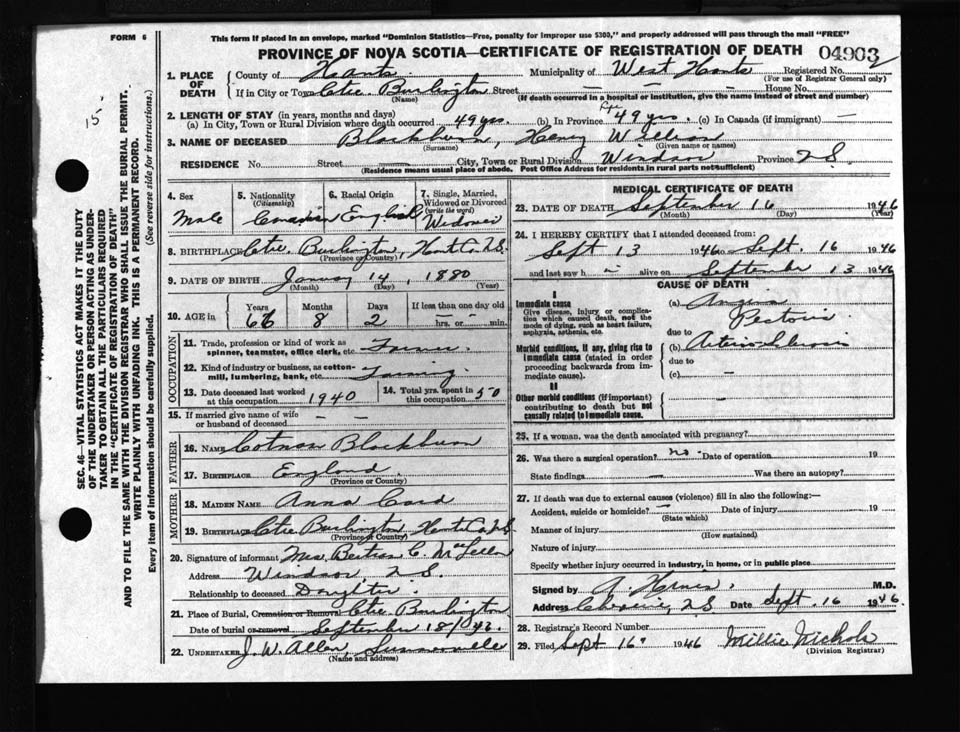 FORM 6
This form if placed in an envelope, marked "Dominion Statistics—Free, penalty for improper use $300," and properly addressed will pass through the mail "FREE"
PROVINCE OF NOVA SCOTIA—CERTIFICATE OF REGISTRATION OF DEATH
04903
1. PLACE OF DEATH
County of Hants Municipality of West Hants Registered No. 2
(For use of Registrar General only)
If in City or Town Ctre. Burlington Street — — House No. —
(Name) (If death occurred in a hospital or institution, give the name instead of street and number)
2. LENGTH OF STAY (in years, months and days)
(a) In City, Town or Rural Division where death occurred 49 yrs. (b) In Province 49 yrs. (c) In Canada (if immigrant) —
3. NAME OF DECEASED Blackburn, Henry William
(Surname) (Given name or names)
RESIDENCE No. Street — City, Town or Rural Division Windsor Province N.S.
(Residence means usual place of abode. Post Office Address for residents in rural parts not sufficient)
4. Sex Male
5. Nationality (Citizenship) Canadian
6. Racial Origin English
7. Single, Married, Widowed or Divorced (write the word) Widower
8. BIRTHPLACE Ctre. Burlington, Hants Co. N.S.
(Province or Country)
9. DATE OF BIRTH January 14, 1880
(Month) (Day) (Year)
10. AGE in Years 66 Months 8 Days 2 If less than one day old — hrs. or — min.
OCCUPATION
11. Trade, profession or kind of work as spinner, teamster, office clerk, etc. Farmer.
12. Kind of industry or business, as cotton-mill, lumbering, bank, etc. Farming
13. Date deceased last worked at this occupation 1940
14. Total yrs. spent in this occupation 50
15. If married give name of wife or husband of deceased — —
FATHER
16. NAME Blackburn
17. BIRTHPLACE England.
(Province or Country)
MOTHER
18. MAIDEN NAME Anna
19. BIRTHPLACE Ctre Burlington Hants Co. N.S.
(Province or Country)
20. Signature of informant Mrs. C.
Address Windsor, N.S.
Relationship to deceased Daughter.
21. Place of Burial, Cremation or Removal Ctre. Burlington
Date of burial or removal September 18/
22. UNDERTAKER J. W. Allen,
(Name and address)
MEDICAL CERTIFICATE OF DEATH
23. DATE OF DEATH September 16 1946
(Month) (Day) (Year)
24. I HEREBY CERTIFY that I attended deceased from:
Sept 13 1946 to Sept. 16 1946
and last saw h — alive on September 13 1946
CAUSE OF DEATH
I
Immediate cause
Give disease, injury or complication which caused death, not the mode of dying, such as heart failure, asphyxia, asthenia, etc.
(a) Angina Pectoris
due to
Morbid conditions, if any, giving rise to immediate cause (stated in order proceeding backwards from immediate cause).
(b)
due to
(c) —
II
Other morbid conditions (if important) contributing to death but not causally related to immediate cause.
—
25. If a woman, was the death associated with pregnancy?
26. Was there a surgical operation? no. Date of operation 19
State findings — Was there an autopsy?
27. If death was due to external causes (violence) fill in also the following:—
Accident, suicide or homicide? — Date of injury 19
(State which)
Manner of injury
(How sustained)
Nature of injury
Specify whether injury occurred in industry, in home, or in public place
Signed by A. M.D.
Address N.S Date Sept. 16 1946.
28. Registrar's Record Number
29. Filed Sept 16 1946 Millie Nichols
(Division Registrar)
15.
SEC. 46—VITAL STATISTICS ACT MAKES IT THE DUTY
OF THE UNDERTAKER OR PERSON ACTING AS UNDER-
TAKER TO OBTAIN ALL THE PARTICULARS REQUIRED
IN THE "CERTIFICATE OF REGISTRATION OF DEATH"
AND TO FILE THE SAME WITH THE DIVISION REGISTRAR WHO SHALL ISSUE THE BURIAL PERMIT.
WRITE PLAINLY WITH UNFADING INK. THIS IS A PERMANENT RECORD.
Every item of information should be carefully supplied. (See reverse side for instructions.)